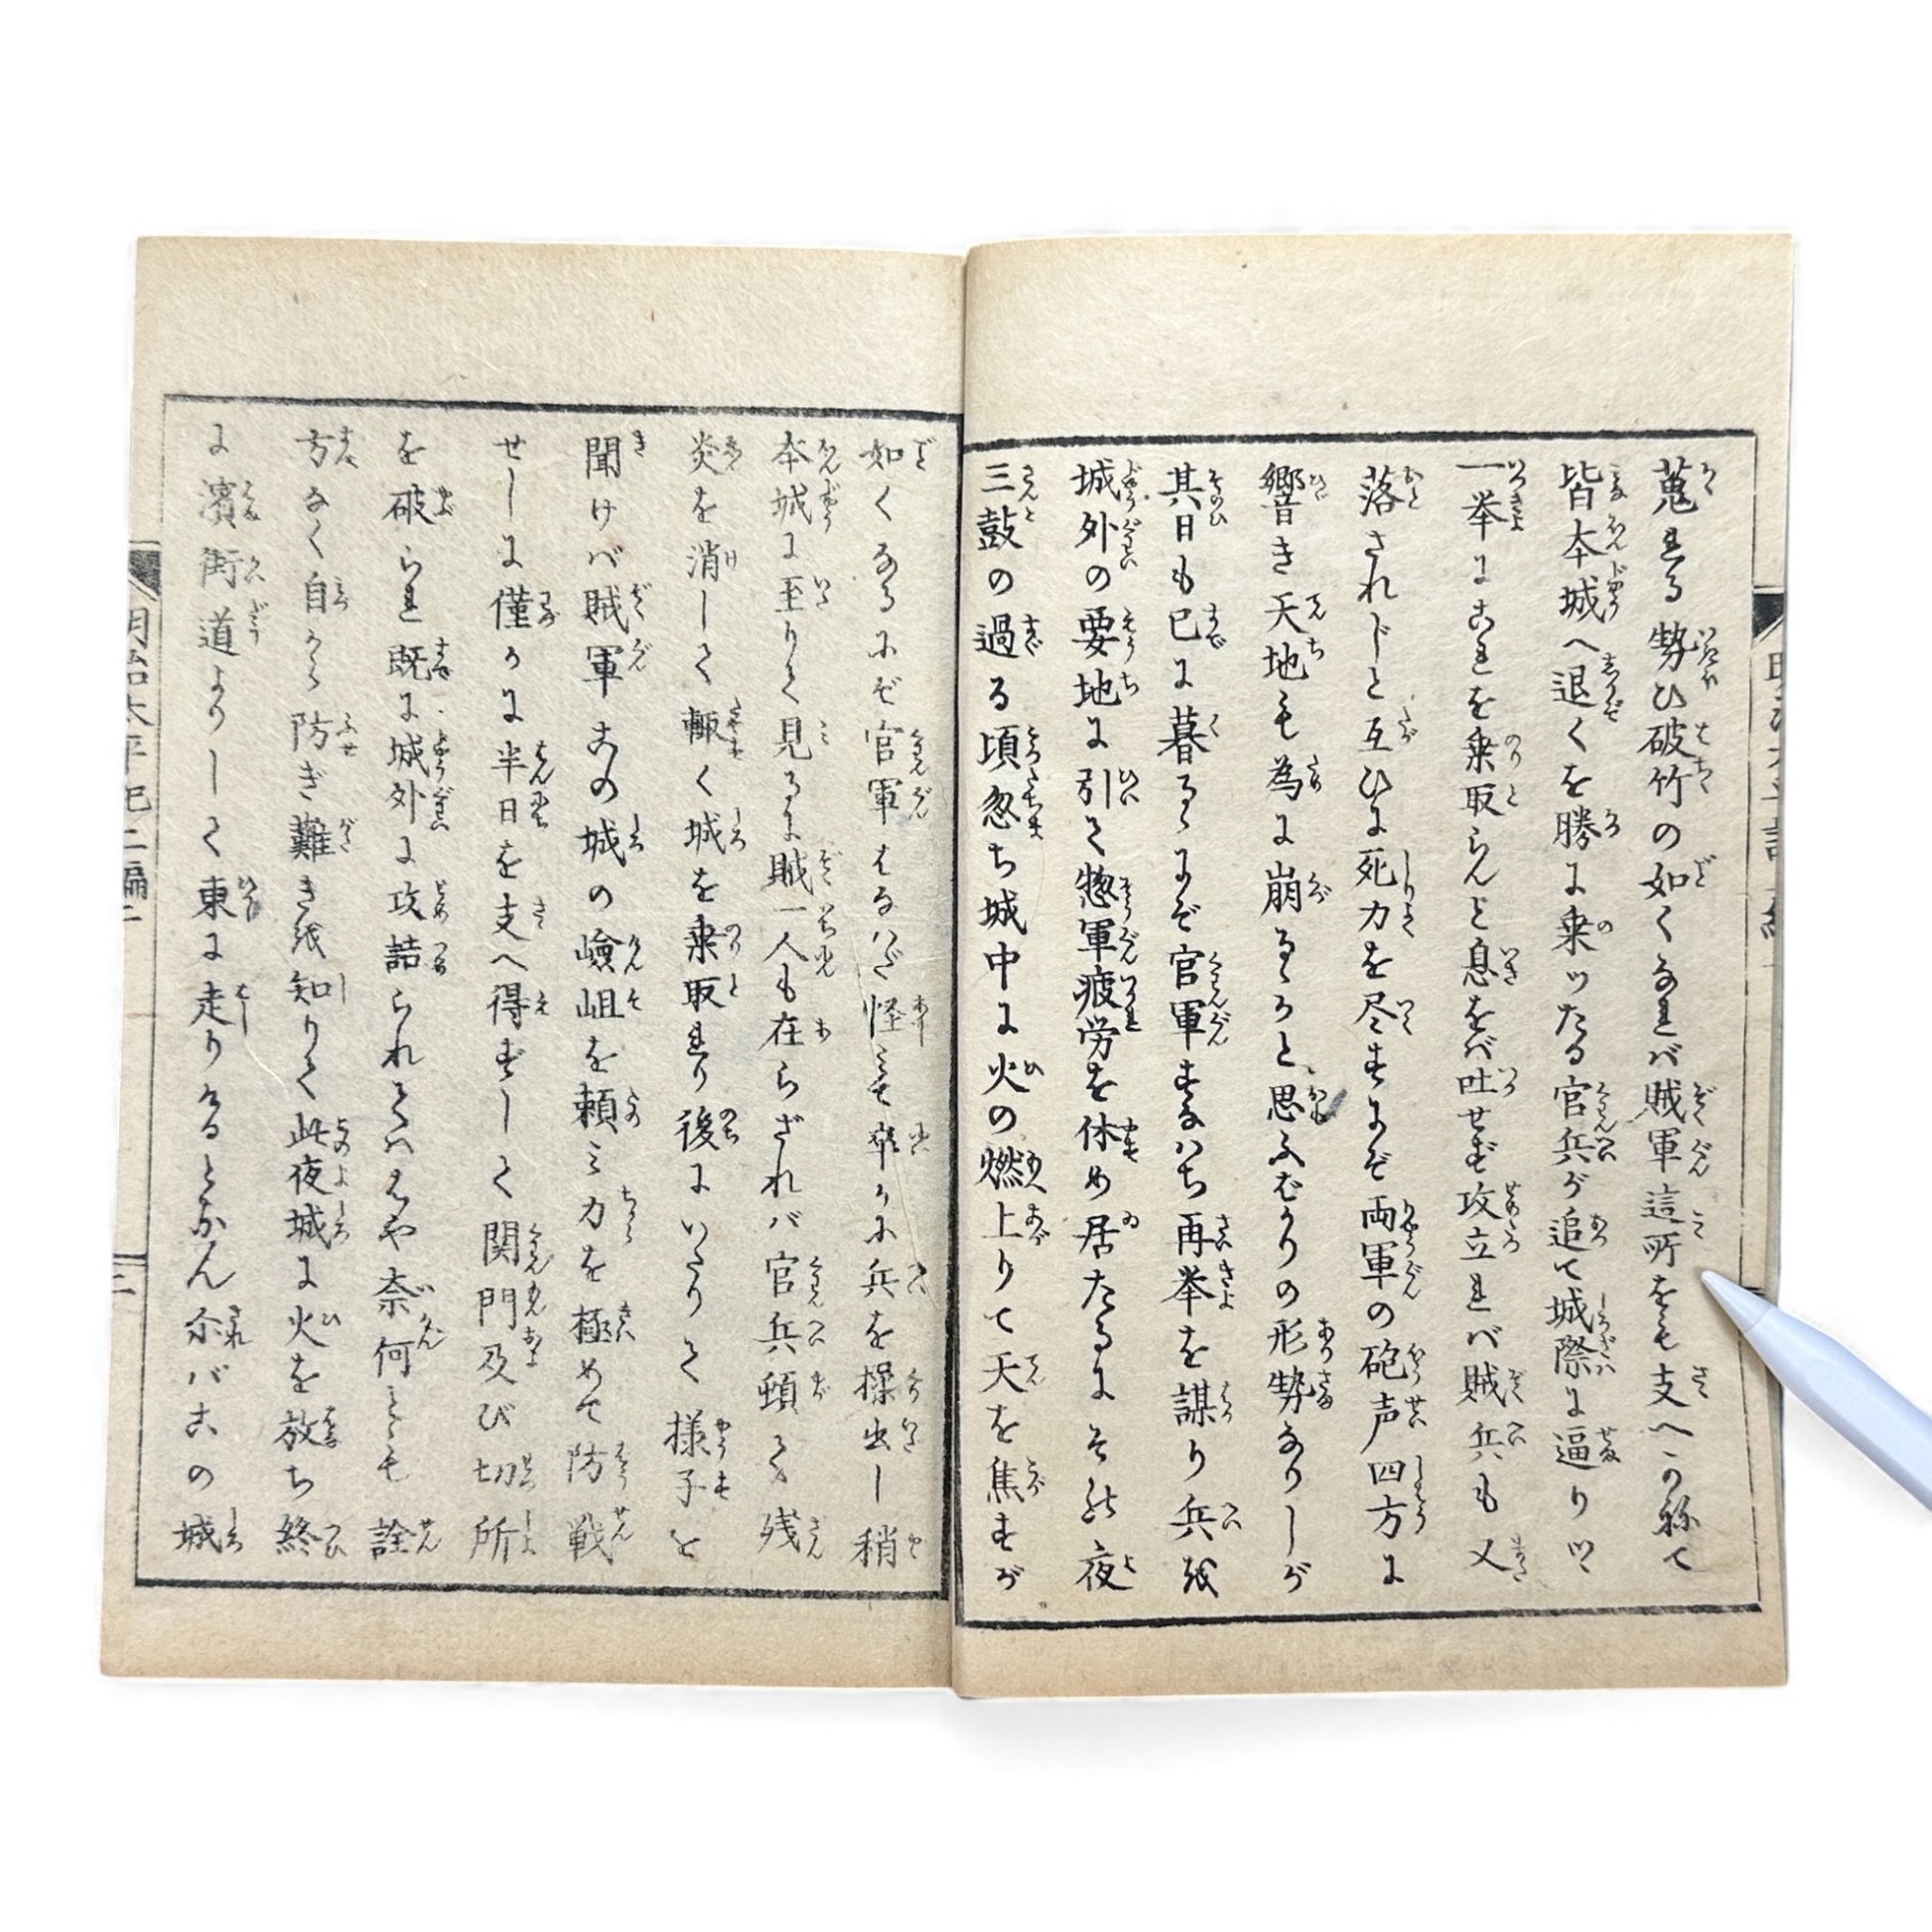 蒐る勢ひ破竹の如くなれバ賊軍這所をも支へかねて
皆本城へ退くを勝に乗ツたる官兵が追て城際に逼りツ
一挙にこれを乗取らんと息をバ吐せず攻立れバ賊兵も又
落されじと互ひに死力を尽すにぞ両軍の砲声四方に
響き天地も為に崩るゝかと思ふむかりの形勢なりしが
其日も已に暮るゝにぞ官軍すなハち再挙を謀り兵を
城外の要地に引て惣軍疲労を休め居たるにその夜
三鼓の過る頃忽ち城中に火の燃上りて天を焦すが
如くなるにぞ官軍はなハだ怪ミて卒かに兵を操出し稍
本城に至りて見るに賊一人も在らざれバ官兵頓て残
炎を消して輙く城を乗取れり後にいたりて様子を
聞けバ賊軍この城の嶮岨を頼ミ力を極めて防戦
せしに僅かに半日を支へ得ずして関門及び切所
を破られ既に城外に攻詰られそハはや奈何とも詮
方なく自から防ぎ難きを知りて此夜城に火を放ち終
に濱街道よりして東に走りけるとなん尓バこの城
明治太平記二編二
二